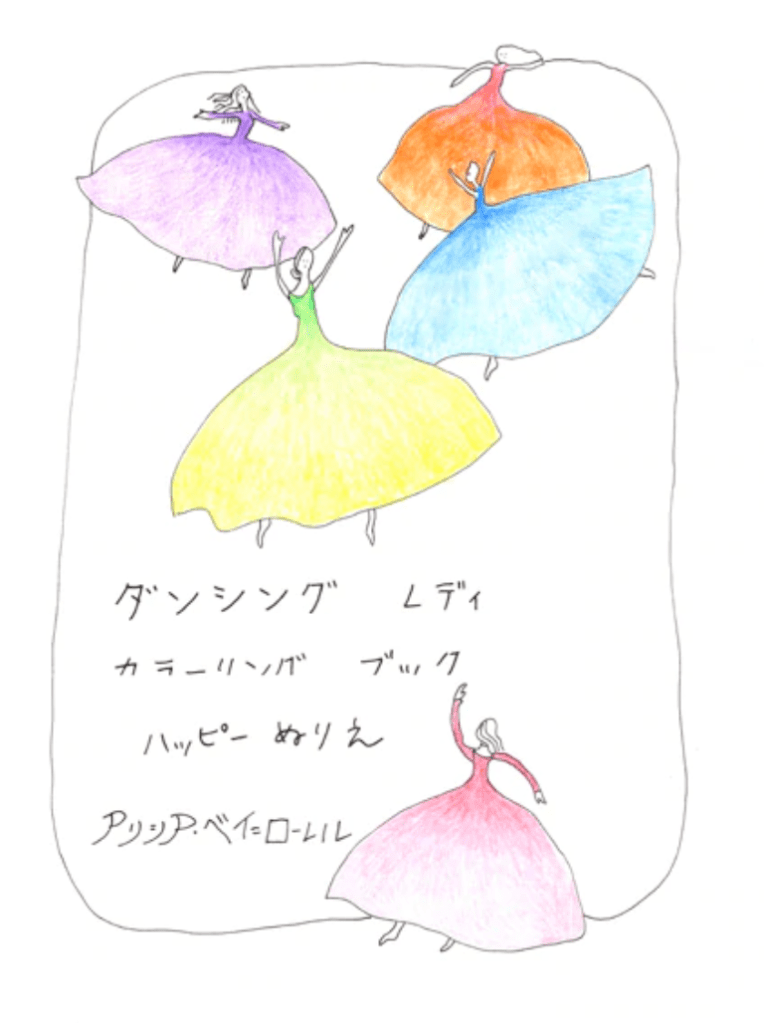 ダンシング レディ
カラーリング ブック
ハッピー ぬりえ
アリシア・ベイ=ローレル